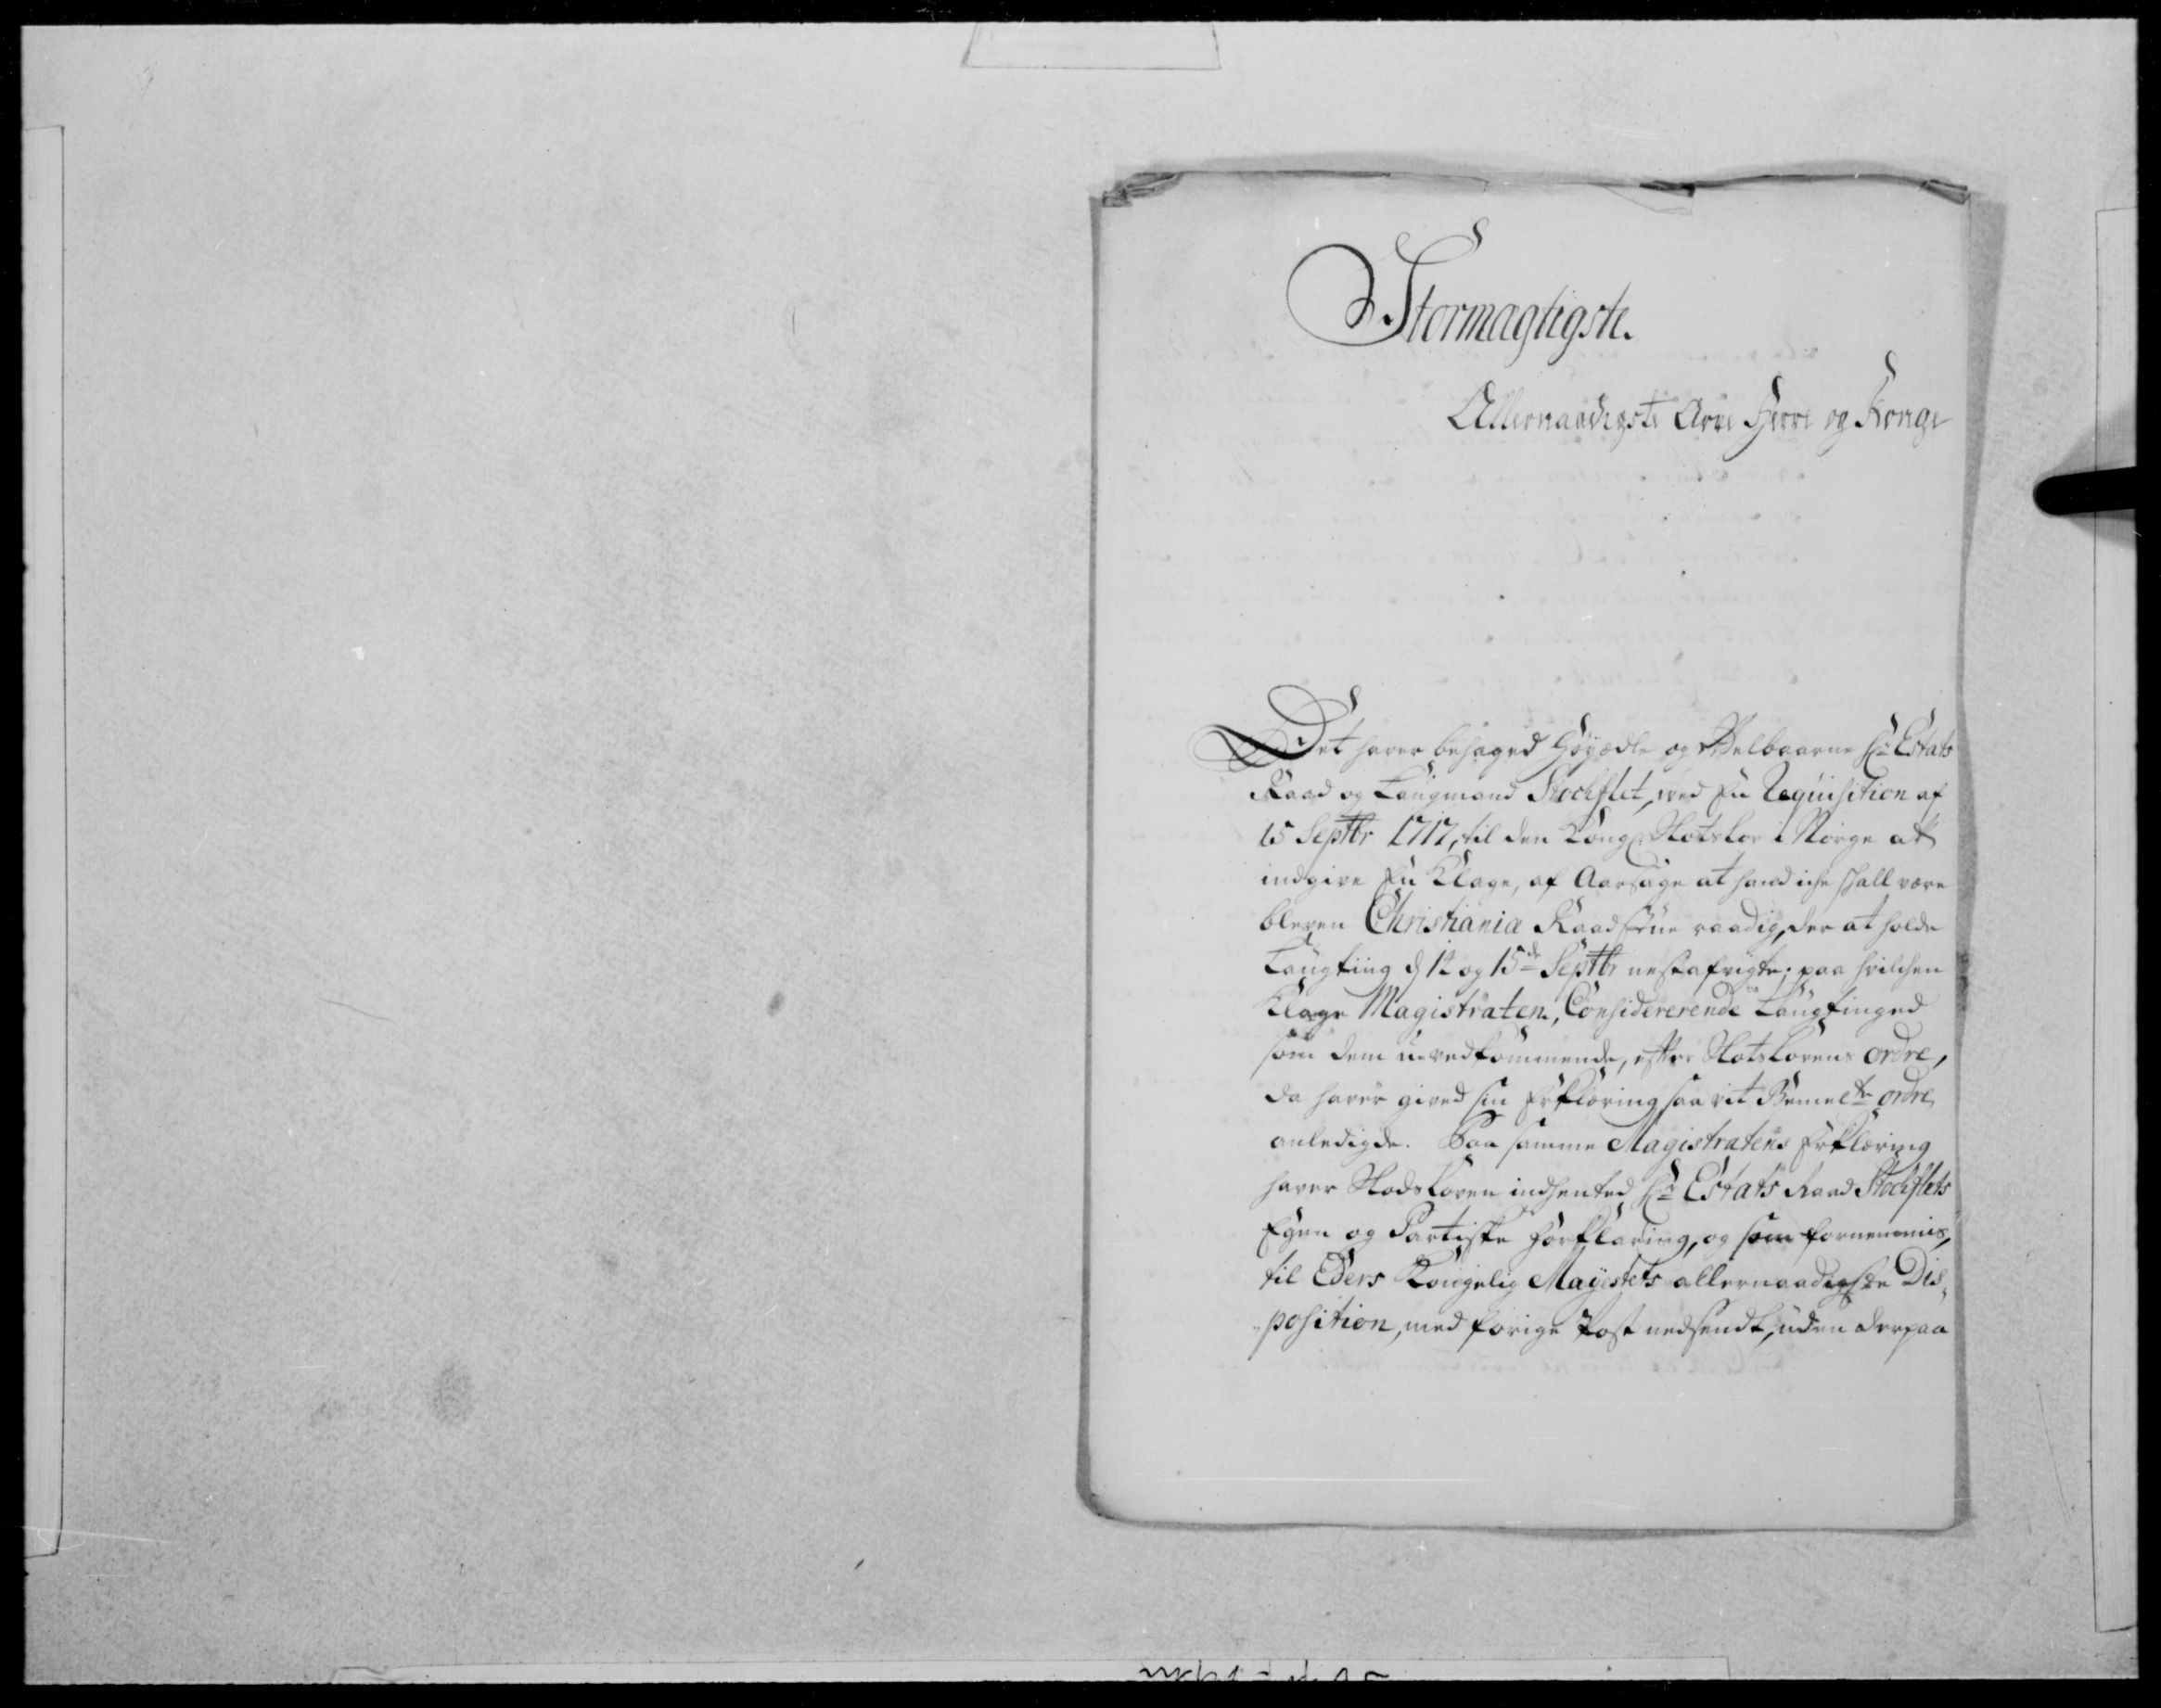 Stormagtigste.
Allernaadigste Arve Herre og Konge
Det haver behaged Höyædle og Welbaarne Hr Estats
Raad og Laugmand Stochflet, ved En Requisition af
15 Septbr 1717, til den Kongl. Slotslov i Norge at
indgive En Klage, af Aarsage at hand iche skall være
bleven Christiania Raadstue raadig, der at holde
Laugting d 14 og 15de Septbr nestafvigte; paa hvilchen
Klage Magistraten, Considererende Laugtinged
som dem u-vedkommende, efter Slotslovens ordre,
da haver gived sin Erklæring saa vit Bemelte ordre
anledigde. Paa samme Magistratens Erklæring
haver Slodsloven indhented Hr Estats Raad Stochflets
Egen og Partiske Forklaring, og som fornemmis,
til Eders Kongelig Mayestets allernaadigste Dis-
position, med forige Post nedsendt, uden derpaa